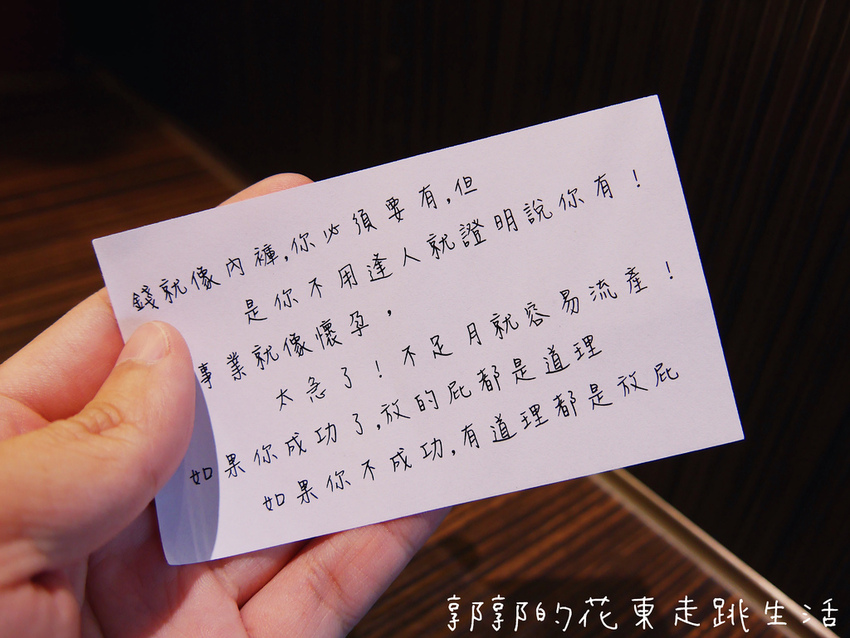 錢就像內褲,你必須要有,但
是你不用逢人就證明說你有!
事業就像懷孕,
太急了!不足月就容易流產!
如果你成功了,放的屁都是道理
如果你不成功,有道理都是放屁
郭郭的花東走跳生活